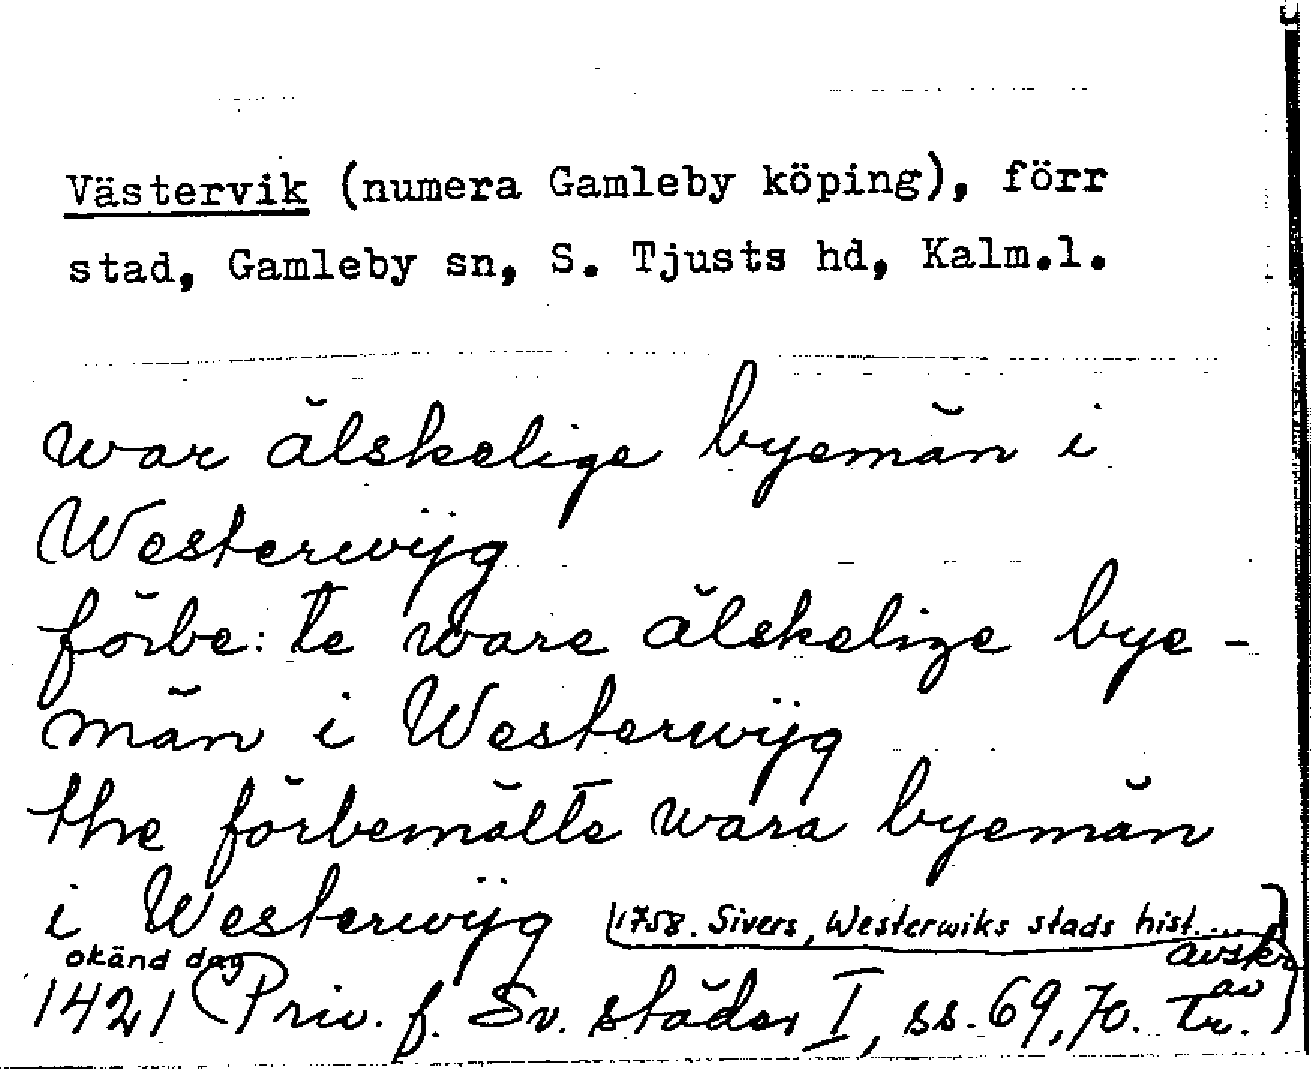 Västervik (numera Gamleby köping), förr
stad, Gamleby sn, S. Tjusts hd, Kalm.l.
war älskelige byemän i
Westerwijg
förbe: te ware älskelige bye-
män i Westerwijg
the förbemälte wara byemän
i Westerwijg [1758. Sivers, Westerwiks stads hist....]
okänd dag avskr
1421 (Priv. f. Sv. städer I, ss. 69, 70. av tr.)